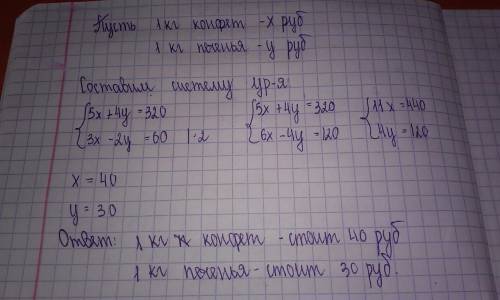 Пусть 1 кг конфет - x руб
1 кг печенья - y руб
Составим систему ур-я
{5x + 4y = 320 {5x + 4y = 320 {11x = 440
{3x - 2y = 60 | ·2 {6x - 4y = 120 {4y = 120
x = 40
y = 30
Ответ: 1 кг конфет - стоит 40 руб
1 кг печенья - стоит 30 руб.